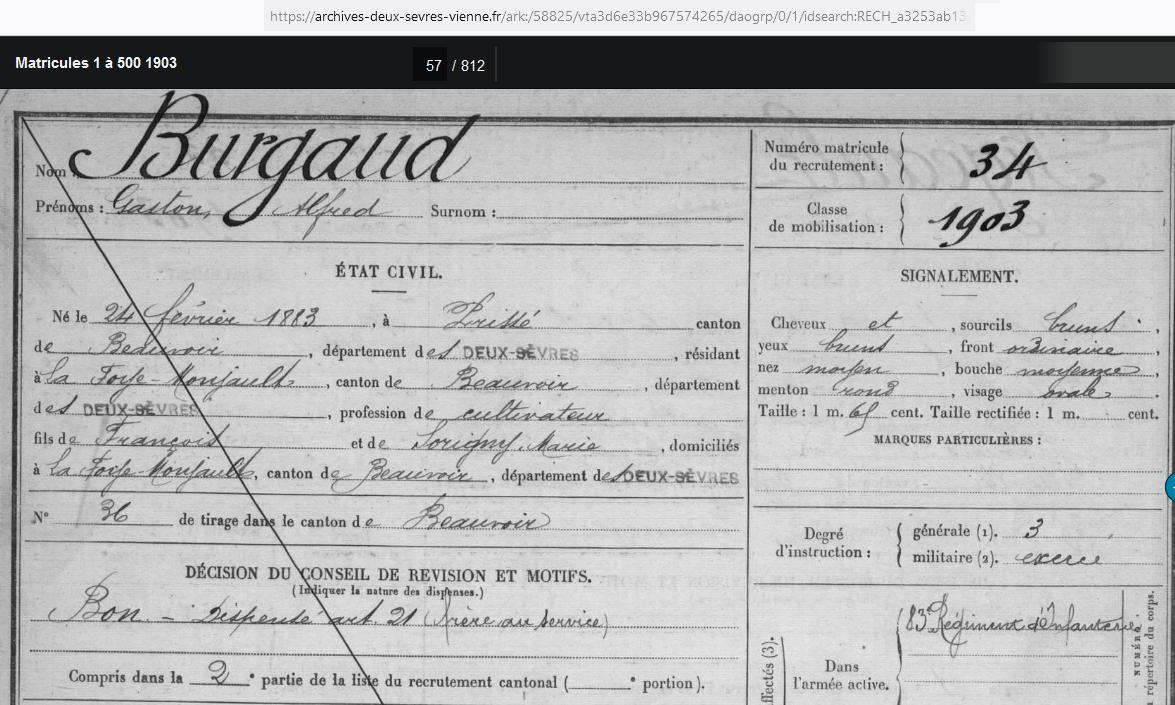 https://archives-deux-sevres-vienne.fr/ark:/58825/vta3d6e33b967574265/daogrp/0/1/idsearch:RECH_a3253ab13
Matricules 1 à 500 1903
57 / 812
Nom : Burgaud
Prénoms : Gaston, Alfred Surnom :
Numéro matricule du recrutement : 34
Classe de mobilisation : 1903
ÉTAT CIVIL.
Né le 24 février 1883, à Prissé canton
de Beauvoir, département des DEUX-SÈVRES, résidant
à la Foye-Monjault, canton de Beauvoir, département
des DEUX-SÈVRES, profession de cultivateur
fils de François et de Sorigny, Marie, domiciliés
à la Foye-Monjault, canton de Beauvoir, département des DEUX-SÈVRES
N° 36 de tirage dans le canton de Beauvoir
SIGNALEMENT.
Cheveux et, sourcils bruns,
yeux bruns, front ordinaire,
nez moyen, bouche moyenne,
menton rond, visage ovale.
Taille : 1 m. 65 cent. Taille rectifiée : 1 m. cent.
MARQUES PARTICULIÈRES :
Degré d'instruction :
générale (1). 3
militaire (2). exercé
DÉCISION DU CONSEIL DE REVISION ET MOTIFS.
(Indiquer la nature des dispenses.)
Bon. - Dispensé art. 21 (frère au service)
Compris dans la 2e partie de la liste du recrutement cantonal ( e portion).
ffectés (3).
Dans l'armée active.
83e Régiment d'Infanterie
NUMÉRO
répertoire du corps.